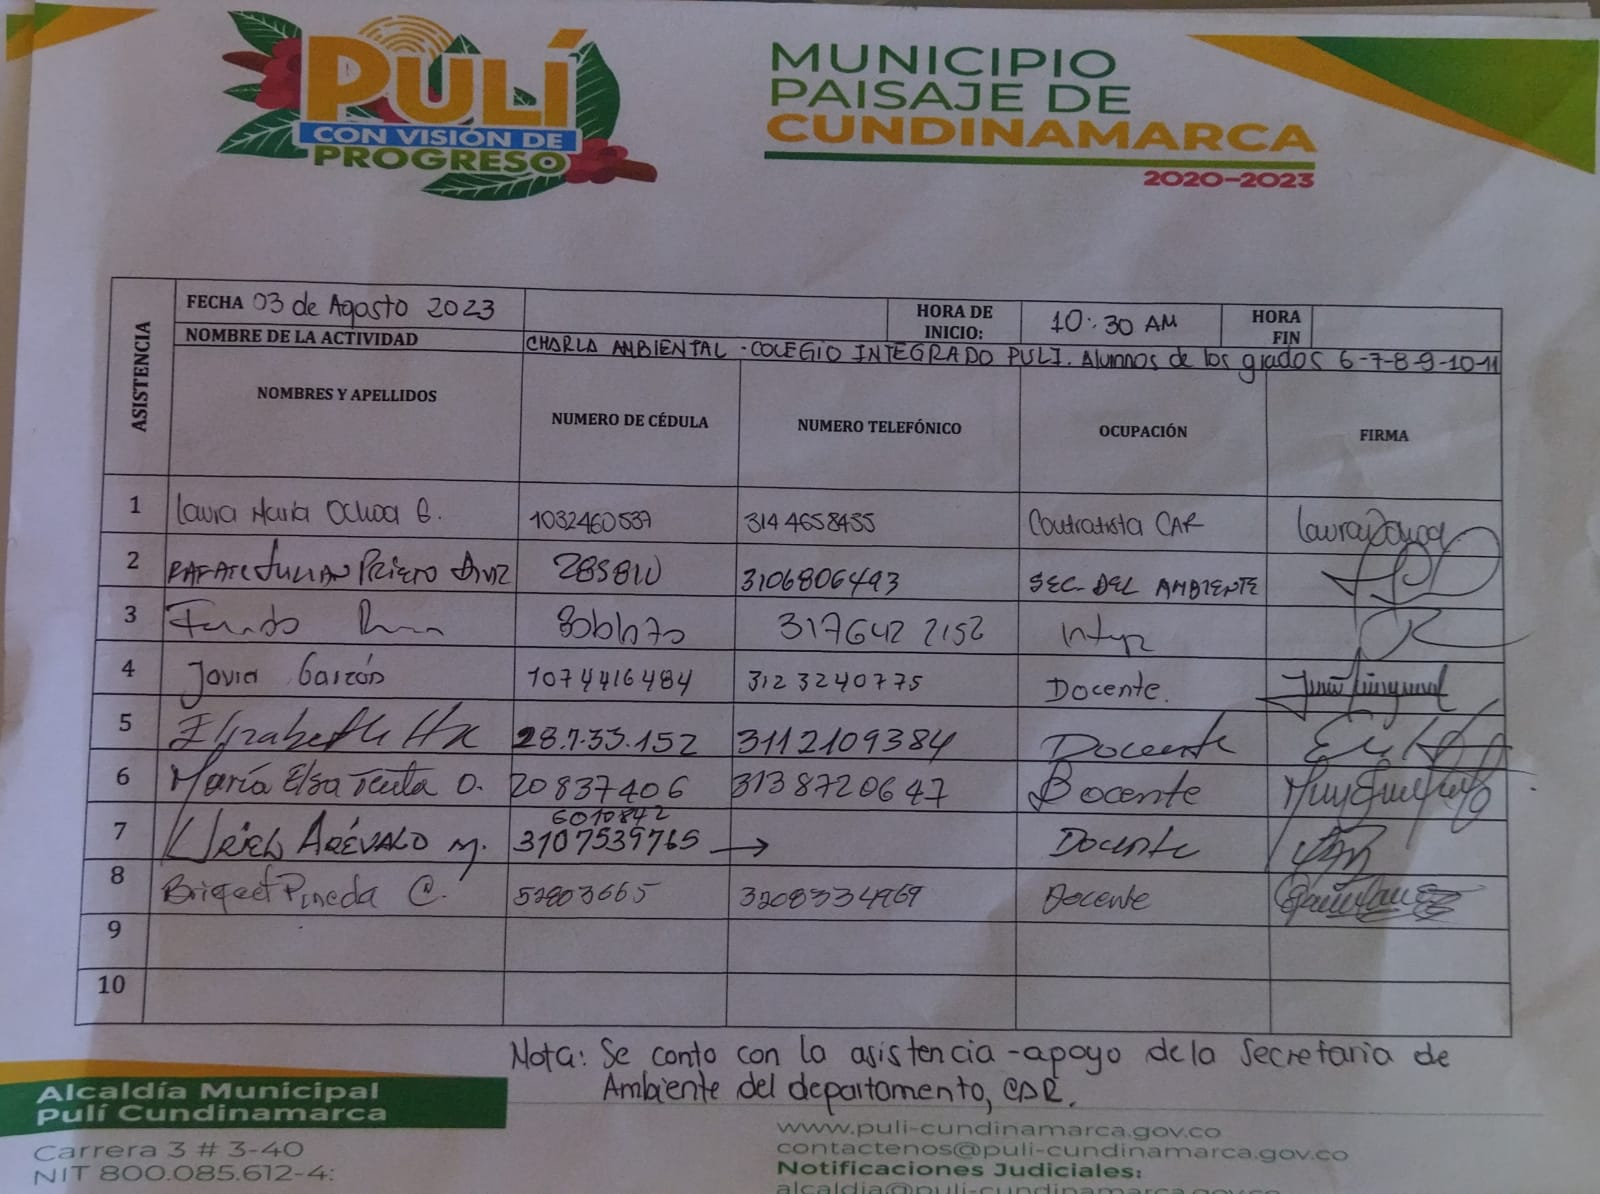 PULÍ
CON VISIÓN DE
PROGRESO
MUNICIPIO
PAISAJE DE
CUNDINAMARCA
2020-2023
ASISTENCIA
FECHA 03 de Agosto 2023 HORA DE INICIO: 10:30 AM HORA FIN
NOMBRE DE LA ACTIVIDAD CHARLA AMBIENTAL - COLEGIO INTEGRADO PULI. Alumnos de los grados 6-7-8-9-10-11
NOMBRES Y APELLIDOS NUMERO DE CÉDULA NUMERO TELEFÓNICO OCUPACIÓN FIRMA
1 Laura Maria Ochoa G. 1032460537 314 4658435 Contratista CAR
2 Julian Prieto 3106806493 SEC. DEL AMBIENTE
3 317642 2152
4 Garzón 1074416484 312 3240775 Docente.
5 Elizabeth 28.733.152 3112109384 Docente
6 María Elsa O. 20837406 3138720647 Docente
7 Arévalo M. 6010842 Docente
3107539765 →
8 Pineda C. 52803665 3208334969 Docente
9
10
Nota: Se conto con la asistencia - apoyo de la Secretaria de
Ambiente del departamento, CAR.
Alcaldía Municipal
Pulí Cundinamarca
Carrera 3 # 3-40
NIT 800.085.612-4:
www.puli-cundinamarca.gov.co
contactenos@puli-cundinamarca.gov.co
Notificaciones Judiciales:
alcaldia@puli-cundinamarca.gov.co